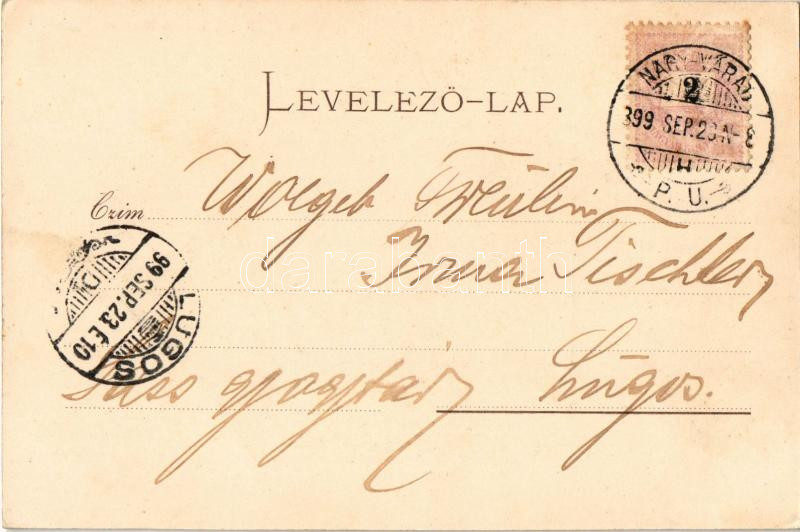 LEVELEZŐ-LAP.
NAGY-VÁRAD
2
899 SEP. 23. N-8
P. U.
Czim Wolgeb Fräulein
Irma Tischler
99 SEP. 23. É 10
LUGOS
Süss gyogytár Lugos.
darabanth